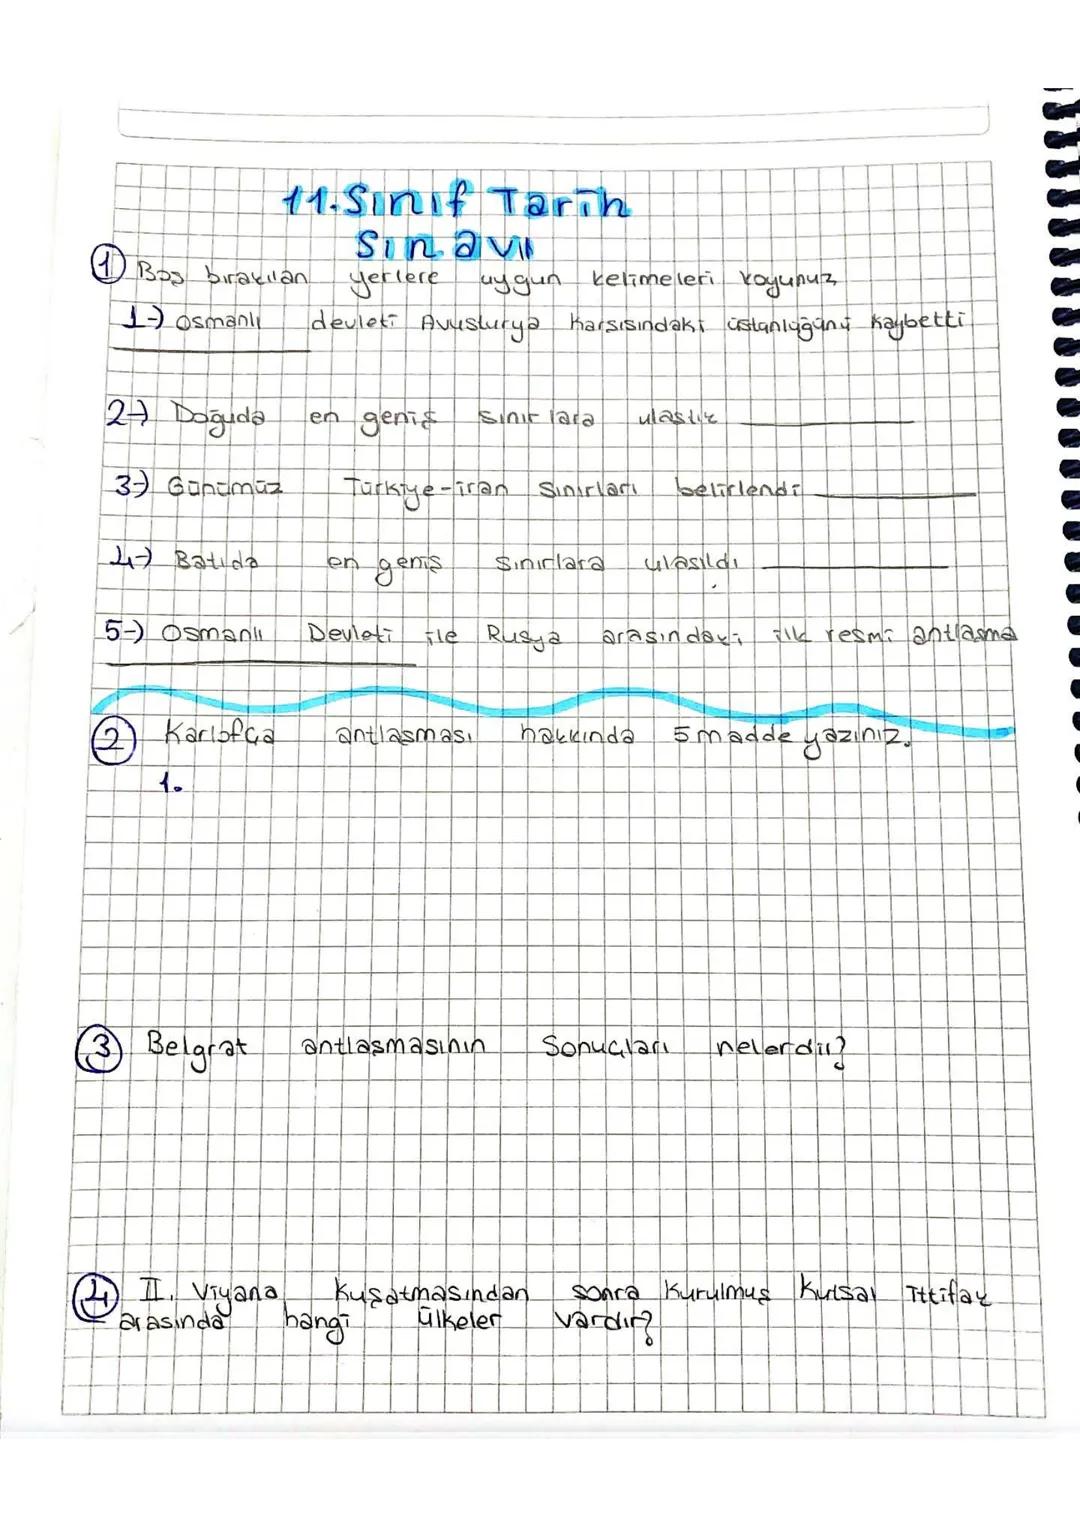 11.Sınıf Tarih
Sınavı
1 Boş bırakılan yerlere uygun kelimeleri koyunuz
1-) Osmanlı devleti Avusturya karşısındaki üstünlüğünü kaybetti
2-) Doğuda en geniş sınırlara ulaştık
3-) Günümüz Türkiye-iran sınırları belirlendi
4-) Batıda en geniş sınırlara ulaşıldı
5-) Osmanlı Devleti ile Rusya arasındaki ilk resmi antlaşma
2 Karlofça antlaşması hakkında 5 madde yazınız.
1.
3 Belgrat antlaşmasının Sonuçları nelerdir?
4 II. Viyana Kuşatmasından sonra Kurulmuş Kutsal İttifak
arasında hangi ülkeler vardır?